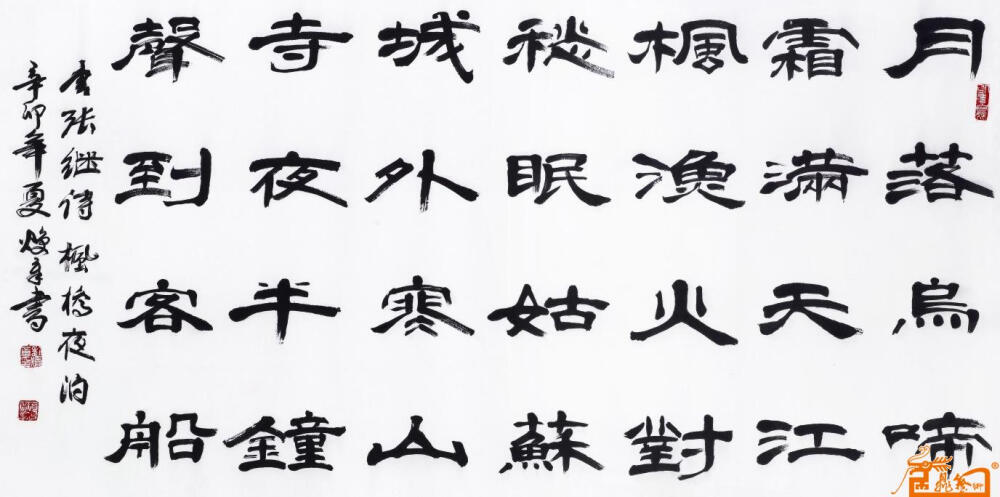 月落烏啼
霜滿天江
楓漁火對
愁眠姑蘇
城外寒山
寺夜半鐘
聲到客船
書張繼詩楓橋夜泊
辛卯年夏書